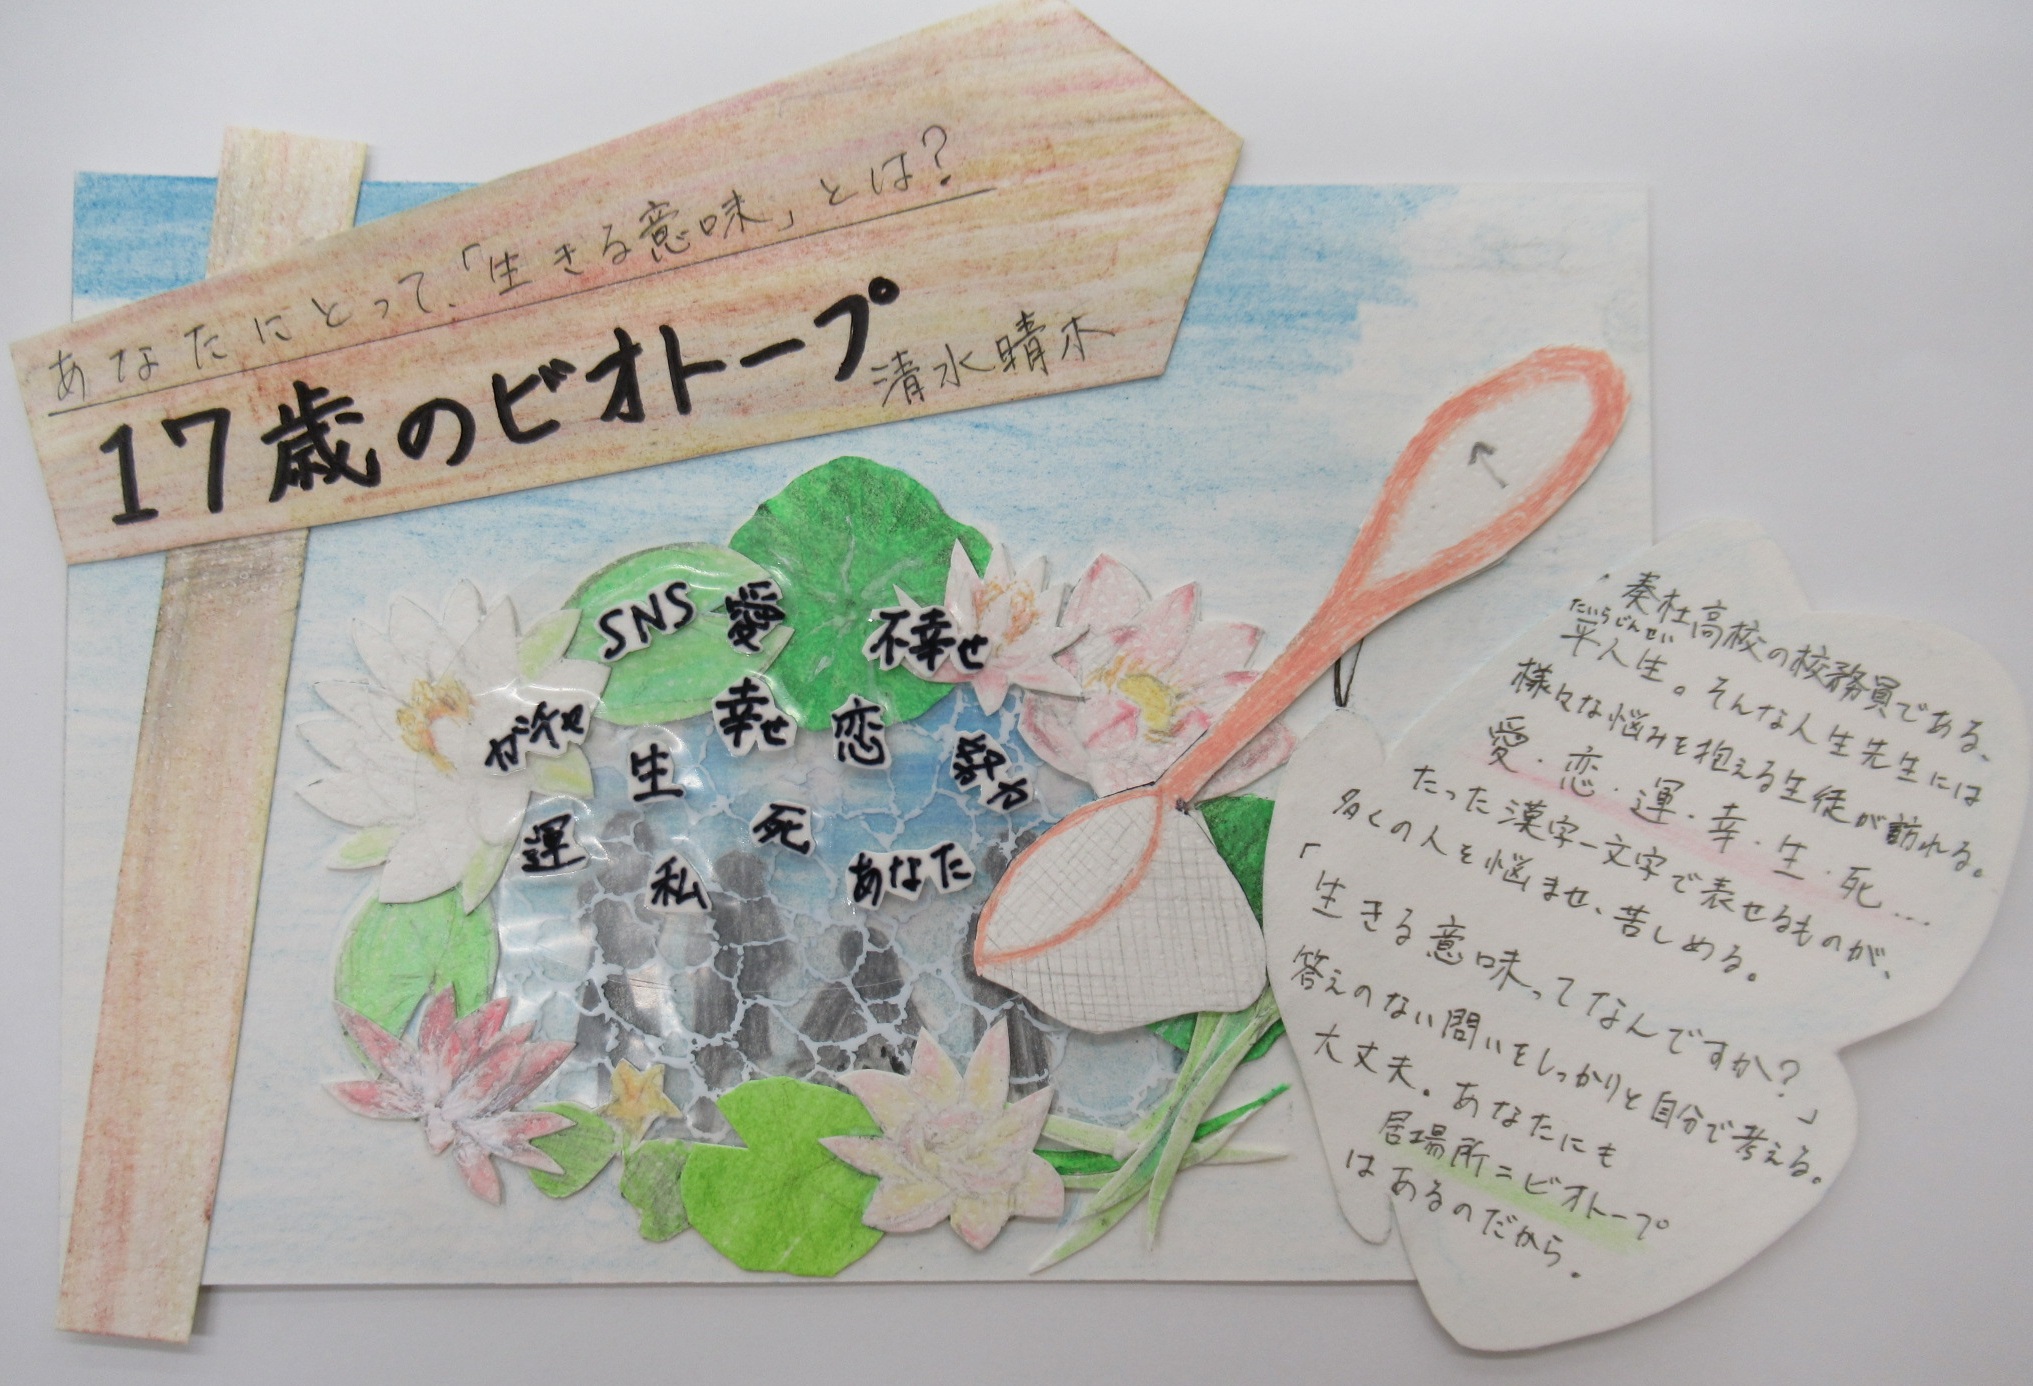 あなたにとって、「生きる意味」とは？
17歳のビオトープ
清水晴木
SNS
愛
不幸せ
ガチャ
生
幸せ
恋
努力
運
私
死
あなた
奏杜高校の校務員である、
たいらじんせい
平人生。そんな人生先生には
様々な悩みを抱える生徒が訪れる。
愛・恋・運・幸・生・死…
たった漢字一文字で表せるものが、
多くの人を悩ませ、苦しめる。
「生きる意味ってなんですか？」
答えのない問いをしっかりと自分で考える。
大丈夫。あなたにも
居場所=ビオトープ
はあるのだから。